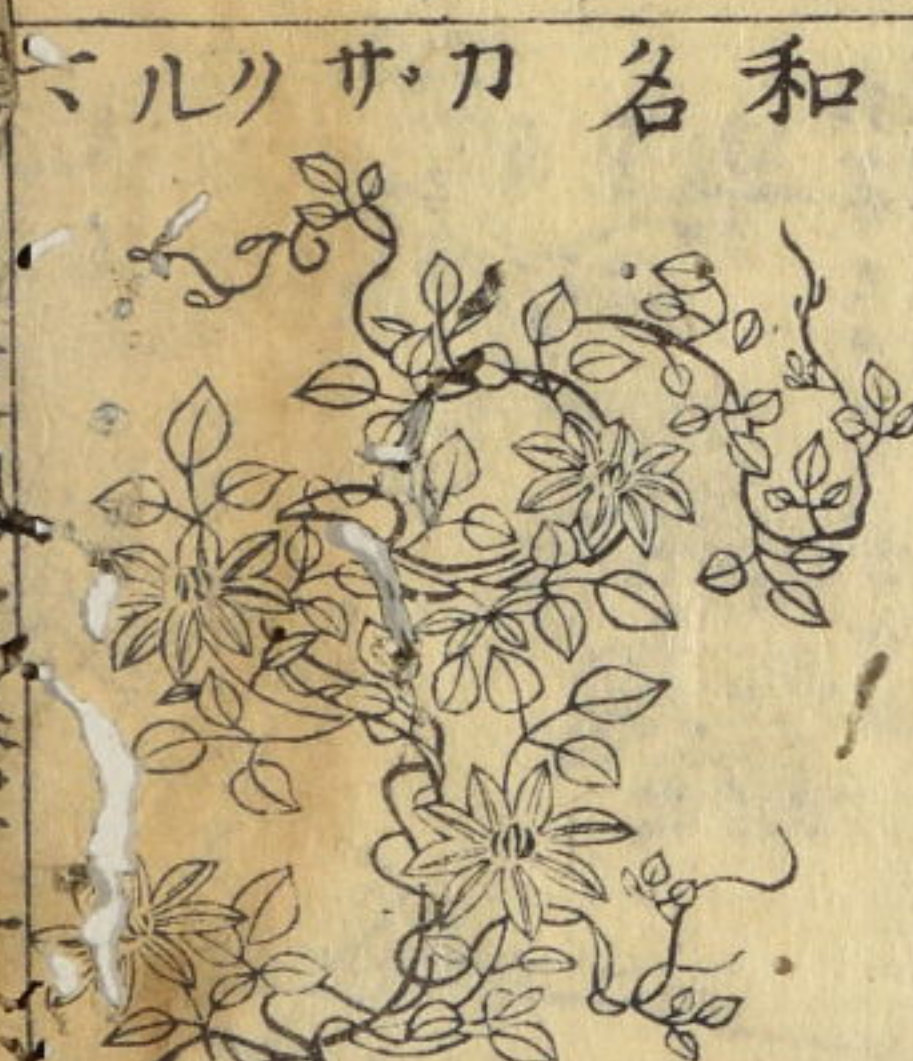 和名 カザクルマ